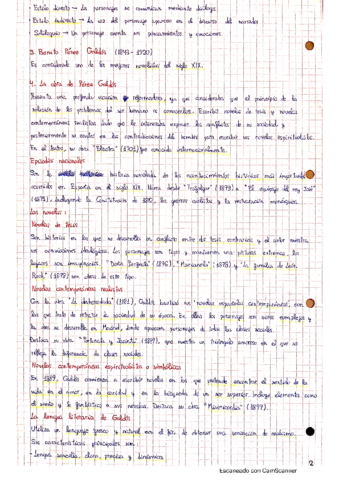 · Estilo directo → Los personajes se comunican mediante diálogos
· Estilo indirecto → La voz del personaje aparece en el discurso del narrador
· Soliloquio → Un personaje cuenta sus pensamientos y emociones.
3. Benito Pérez Galdós (1843 - 1920)
Es considerado uno de los mejores novelistas del siglo XIX.
4. La obra de Pérez Galdós
Presenta una profunda reformadora, ya que consideraba que el principio de la
solución de los problemas del ser humano es conocerlos. Escribió novelas de tesis y novelas
contemporáneas realistas dado que le interesaba exponer los conflictos de su sociedad y
posteriormente se centró en las contradicciones del hombre para escribir sus novelas espiritualistas.
En el teatro, su obra "Electra" (1901) fue conocida internacionalmente.
Episodios nacionales
Son la histórica novelada de los acontecimientos históricos más importantes
ocurridos en España en el siglo XIX. Libros desde "Trafalgar" (1873) a "El equipaje del rey José"
(1875), incluyendo la Constitución de 1812, las guerras carlistas y la restauración monárquica.
Las novelas:
Novelas de tesis
Son historias en las que se desarrolla un conflicto entre dos tesis contrarias y el autor muestra
sus convicciones ideológicas. Los personajes son tipos y mantienen una postura extrema, los
lugares son imaginarios. "Doña Perfecta" (1876), "Marianela" (1878) y "La familia de León
Roch" (1878) son obras de este tipo.
Novelas contemporáneas realistas
Con la obra "La desheredada" (1881), Galdós comienza sus "novelas españolas contemporáneas", son
las que trata de retratar la sociedad de su época. En ellas los personajes son seres complejos y
la obra se desarrolla en Madrid, donde aparecen personajes de todas las clases sociales.
Destaca su obra "Fortunata y Jacinta" (1887), que muestra un triángulo amoroso en el que se
refleja la diferencia de clases sociales.
Novelas contemporáneas espiritualistas o simbólicas
En 1889, Galdós comienza a escribir novelas en las que pretende encontrar el sentido de la
vida en el amor, en la caridad y en la búsqueda de un ser superior. Incluye elementos como
el sueño y lo fantástico a sus novelas. Destaca su obra "Misericordia" (1897).
La lengua literaria de Galdós
Utiliza un lenguaje fresco y natural con el fin de obtener una sensación de realismo.
Sus características principales son:
- Lengua sencilla, clara, precisa y dinámica
2
Escaneado con CamScanner